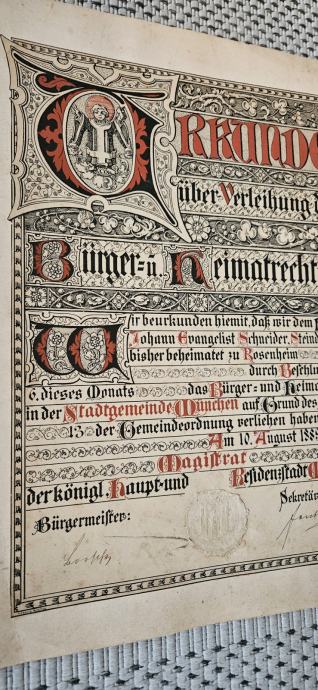 URKUNDE
über Verleihung d
Bürger- u. Heimatrecht
Wir beurkunden hiemit, daß wir dem
Johann Evangelist Schneider,
bisher beheimatet zu Rosenheim
durch Beschlu
6. dieses Monats das Bürger- und Heima
in der Stadtgemeinde München auf Grund des
13 der Gemeindeordnung verliehen haben
Am 10. August 188
Magistrat
der königl. Haupt- und Residenzstadt
Bürgermeister: Sekretär